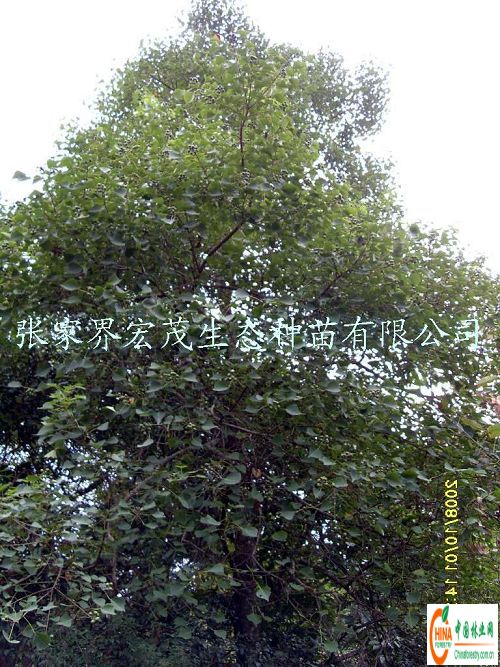 张家界宏茂生态种苗有限公司
2008/10/01 14:
CHINA 中国林业网
FORESTRY Chinaforestry.com.cn